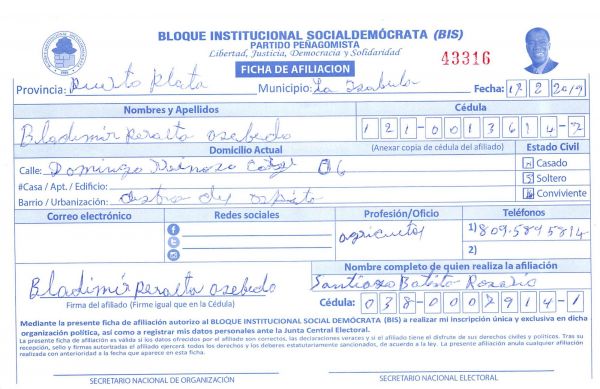 BLOQUE INSTITUCIONAL SOCIALDEMÓCRATA (BIS)
PARTIDO PEÑAGOMISTA
Libertad, Justicia, Democracia y Solidaridad
43316
FICHA DE AFILIACION
Provincia: Puerto Plata Municipio: La Isabela Fecha: 12 2 2019
Nombres y Apellidos Cédula
Bladimír Peralta Osebedo 121-0013614-7
Domicilio Actual (Anexar copia de cédula del afiliado) Estado Civil
Calle: Domingo 06
Casado
#Casa / Apt. / Edificio:
Soltero
Barrio / Urbanización:
Conviviente
Correo electrónico Redes sociales Profesión/Oficio Teléfonos
agricultor 1) 809-589 5814
2)
Nombre completo de quien realiza la afiliación
Bladimír Peralta Osebedo Santiago Batista Rosario
Firma del afiliado (Firme igual que en la Cédula) Cédula: 038-0007914-1
Mediante la presente ficha de afiliación autorizo al BLOQUE INSTITUCIONAL SOCIAL DEMÓCRATA (BIS) a realizar mi inscripción única y exclusiva en dicha
organización política, así como a registrar mis datos personales ante la Junta Central Electoral.
La presente ficha de afiliación es válida si los datos ofrecidos por el afiliado son correctos, las declaraciones veraces y si el afiliado tiene el disfrute de sus derechos civiles y políticos. Tras su
recepción, sello y firmas autorizadas el afiliado ejercerá todos los derechos y los deberes estatutariamente sancionados, de acuerdo a la ley. La presente afiliación anula cualquier afiliación
realizada con anterioridad a la fecha que aparece en esta ficha.
SECRETARIO NACIONAL DE ORGANIZACIÓN SECRETARIO NACIONAL ELECTORAL